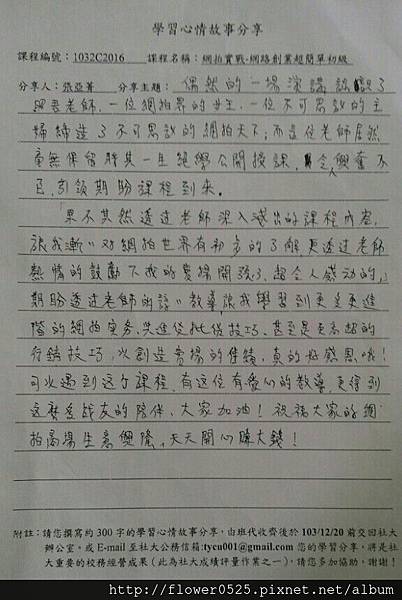 學習心情故事分享
課程編號：1032C2016　課程名稱：網拍實戰-網路創業超簡單初級
分享人：張亞菁　分享主題：偶然的一場演講認識了
老師，一位網拍界的女王，一位不可思議的主
婦締造了不可思議的網拍天下；而這位老師居然
毫無保留將其一生絕學公開授課，令人興奮不
已，引領期盼課程到來。
「果不其然透过老師深入淺出的課程內容，
讓我漸漸对網拍世界有初步的了解，更透过老師
熱情的鼓勵下我的賣場開張了，超令人感动的」
期盼透过老師的諄諄教導，讓我學習到更多更進
階的網拍实务、批貨技巧，甚至是至高超的
行銷技巧，以創造賣場的佳績，真的好感恩哦！
可以遇到这个課程，有这位有愛心的教導，更得到
这麼多战友的陪伴，大家加油！祝福大家的網
拍賣場生意興隆，天天開心賺大錢！
附註：請您撰寫約 300 字的學習心情故事分享，由班代收齊後於 103/12/20 前交回社大
辦公室，或 E-mail 至社大公務信箱:tycu001@gmail.com 您的學習分享，將是社
大重要的校務經營成果（此為社大成績評量作業之一），請您多加協助，謝謝！
http://flower0525.pixnet.net/album